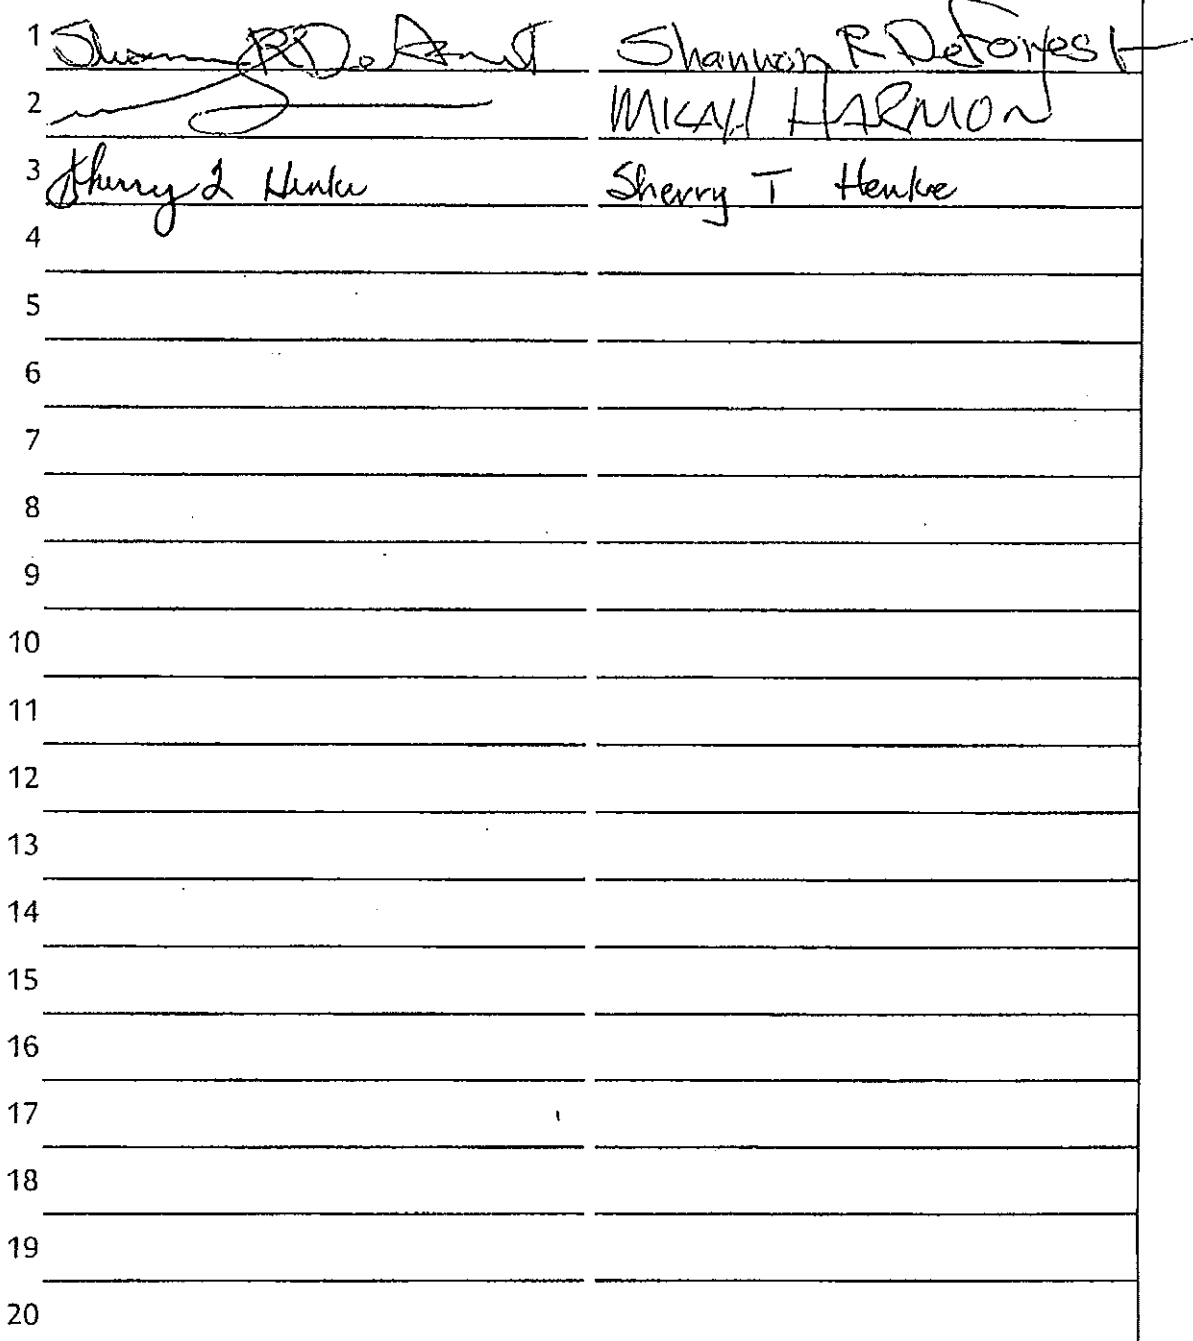 1 Shannon R DeForest Shannon R DeForest
2 MICAH HARMON
3 Sherry L Henke Sherry T Henke
4
5
6
7
8
9
10
11
12
13
14
15
16
17
18
19
20